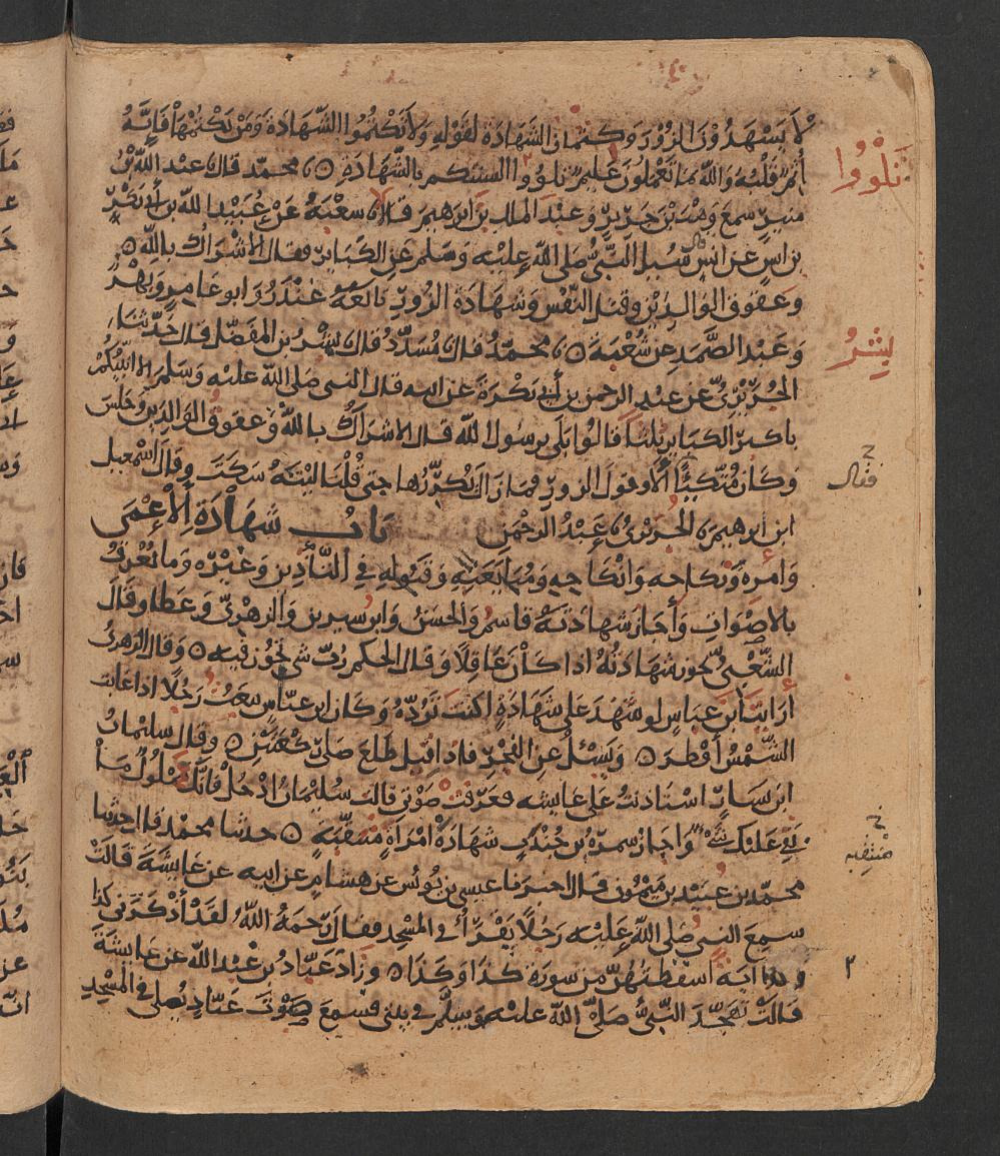 لا يشهدون الزور وكتمان الشهادة لقوله ولا تكتموا الشهادة ومن يكتمها فانه
تلووا
اثم قلبه والله بما تعملون عليم تلووا السنتكم بالشهادة ۝ محمد قال عبد الله بن
منير سمع وهب بن جرير وعبد الملك بن ابرهيم قالا شعبة عن عبيد الله بن ابي بكر
بن انس عن انس قال سئل النبي صلى الله عليه وسلم عن الكبائر فقال الاشراك بالله ۝
وعقوق الوالدين وقتل النفس وشهادة الزور تابعه غندر وابو عامر وبهز
وعبد الصمد عن شعبة ۝ محمد قال مسدد قال بشر بن المفضل قال حدثنا
بشر
الجريري عن عبد الرحمن بن أبي بكرة عن ابيه قال النبي صلى الله عليه وسلم الا انبيكم
باكبر الكبائر ثلثا قالوا بلى يرسول الله قال الاشراك بالله وعقوق الوالدين وجلس
وكان متكئا ألا وقول الزور فما زال يكررها حتى قلنا ليته سكت وقال اسمعيل
فقال
ابن ابرهيم الجريري عبد الرحمن باب شهادة الاعمى
وامره ونكاحه وانكاحه ومبايعته وقبوله في التأذين وغيره وما يعرف
بالاصوات وأجاز شهادته قاسم والحسن وابن سيرين والزهري وعطا وقال
الشعبي تجوز شهادته اذا كان عاقلا وقال الحكم رب شي تجوز فيه ۝ وقال الزهري
ارايت ابن عباس لو شهد على شهادة اكنت ترده وكان ابن عباس يبعث رجلا اذا غابت
الشمس أفطر ۝ ويسئل عن الفجر فاذا قيل طلع صلى ركعتين ۝ وقال سليمان
ابن يسار استاذنت على عايشه فعرفت صوتي قالت سليمان ادخل فانك مملوك ما
بقي عليك شي واجاز سمرة بن جندب شهادة امراة منتقبة ۝ حدثنا محمد قال حدثنا
منتقبه
محمد بن عبيد بن ميمون قال اخبرنا عيسى بن يونس عن هشام عن ابيه عن عايشة قالت
سمع النبي صلى الله عليه رجلا يقرأ في المسجد فقال رحمه الله لقد أذكرني كذا
وكذا اية اسقطتهن من سورة كذا وكذا ۝ وزاد عباد بن عبد الله عن عايشة
٢
قالت تهجد النبي صلى الله عليه وسلم في بيتي فسمع صوت عباد يصلي في المسجد